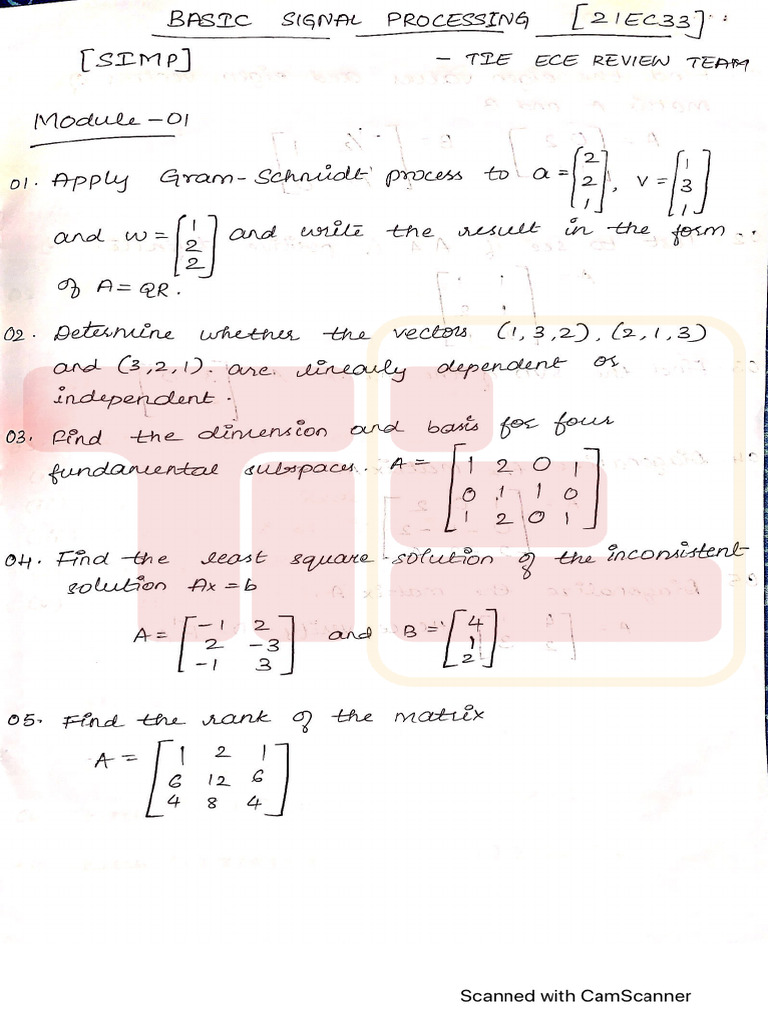 BASIC SIGNAL PROCESSING [21EC33]
[SIMP] - TIE ECE REVIEW TEAM
Module-01
01. Apply Gram-Schmidt process to a = [2 2 1], v = [1 3 1]
and w = [1 2 2] and write the result in the form
of A = QR.
02. Determine whether the vectors (1,3,2), (2,1,3)
and (3,2,1). are linearly dependent or
independent.
03. Find the dimension and basis for four
fundamental subspaces. A = [1 2 0 1
0 1 1 0
1 2 0 1]
04. Find the least square solution of the inconsistent
solution Ax = b
A = [-1 2
2 -3
-1 3] and B = [4 1 2]
05. Find the rank of the matrix
A = [1 2 1
6 12 6
4 8 4]
Scanned with CamScanner